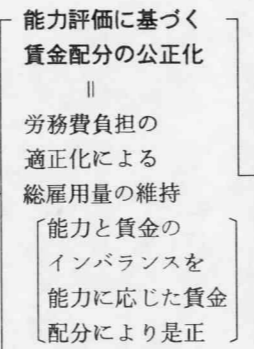 能力評価に基づく
賃金配分の公正化
||
労務費負担の
適正化による
総雇用量の維持
能力と賃金の
インバランスを
能力に応じた賃金
配分により是正